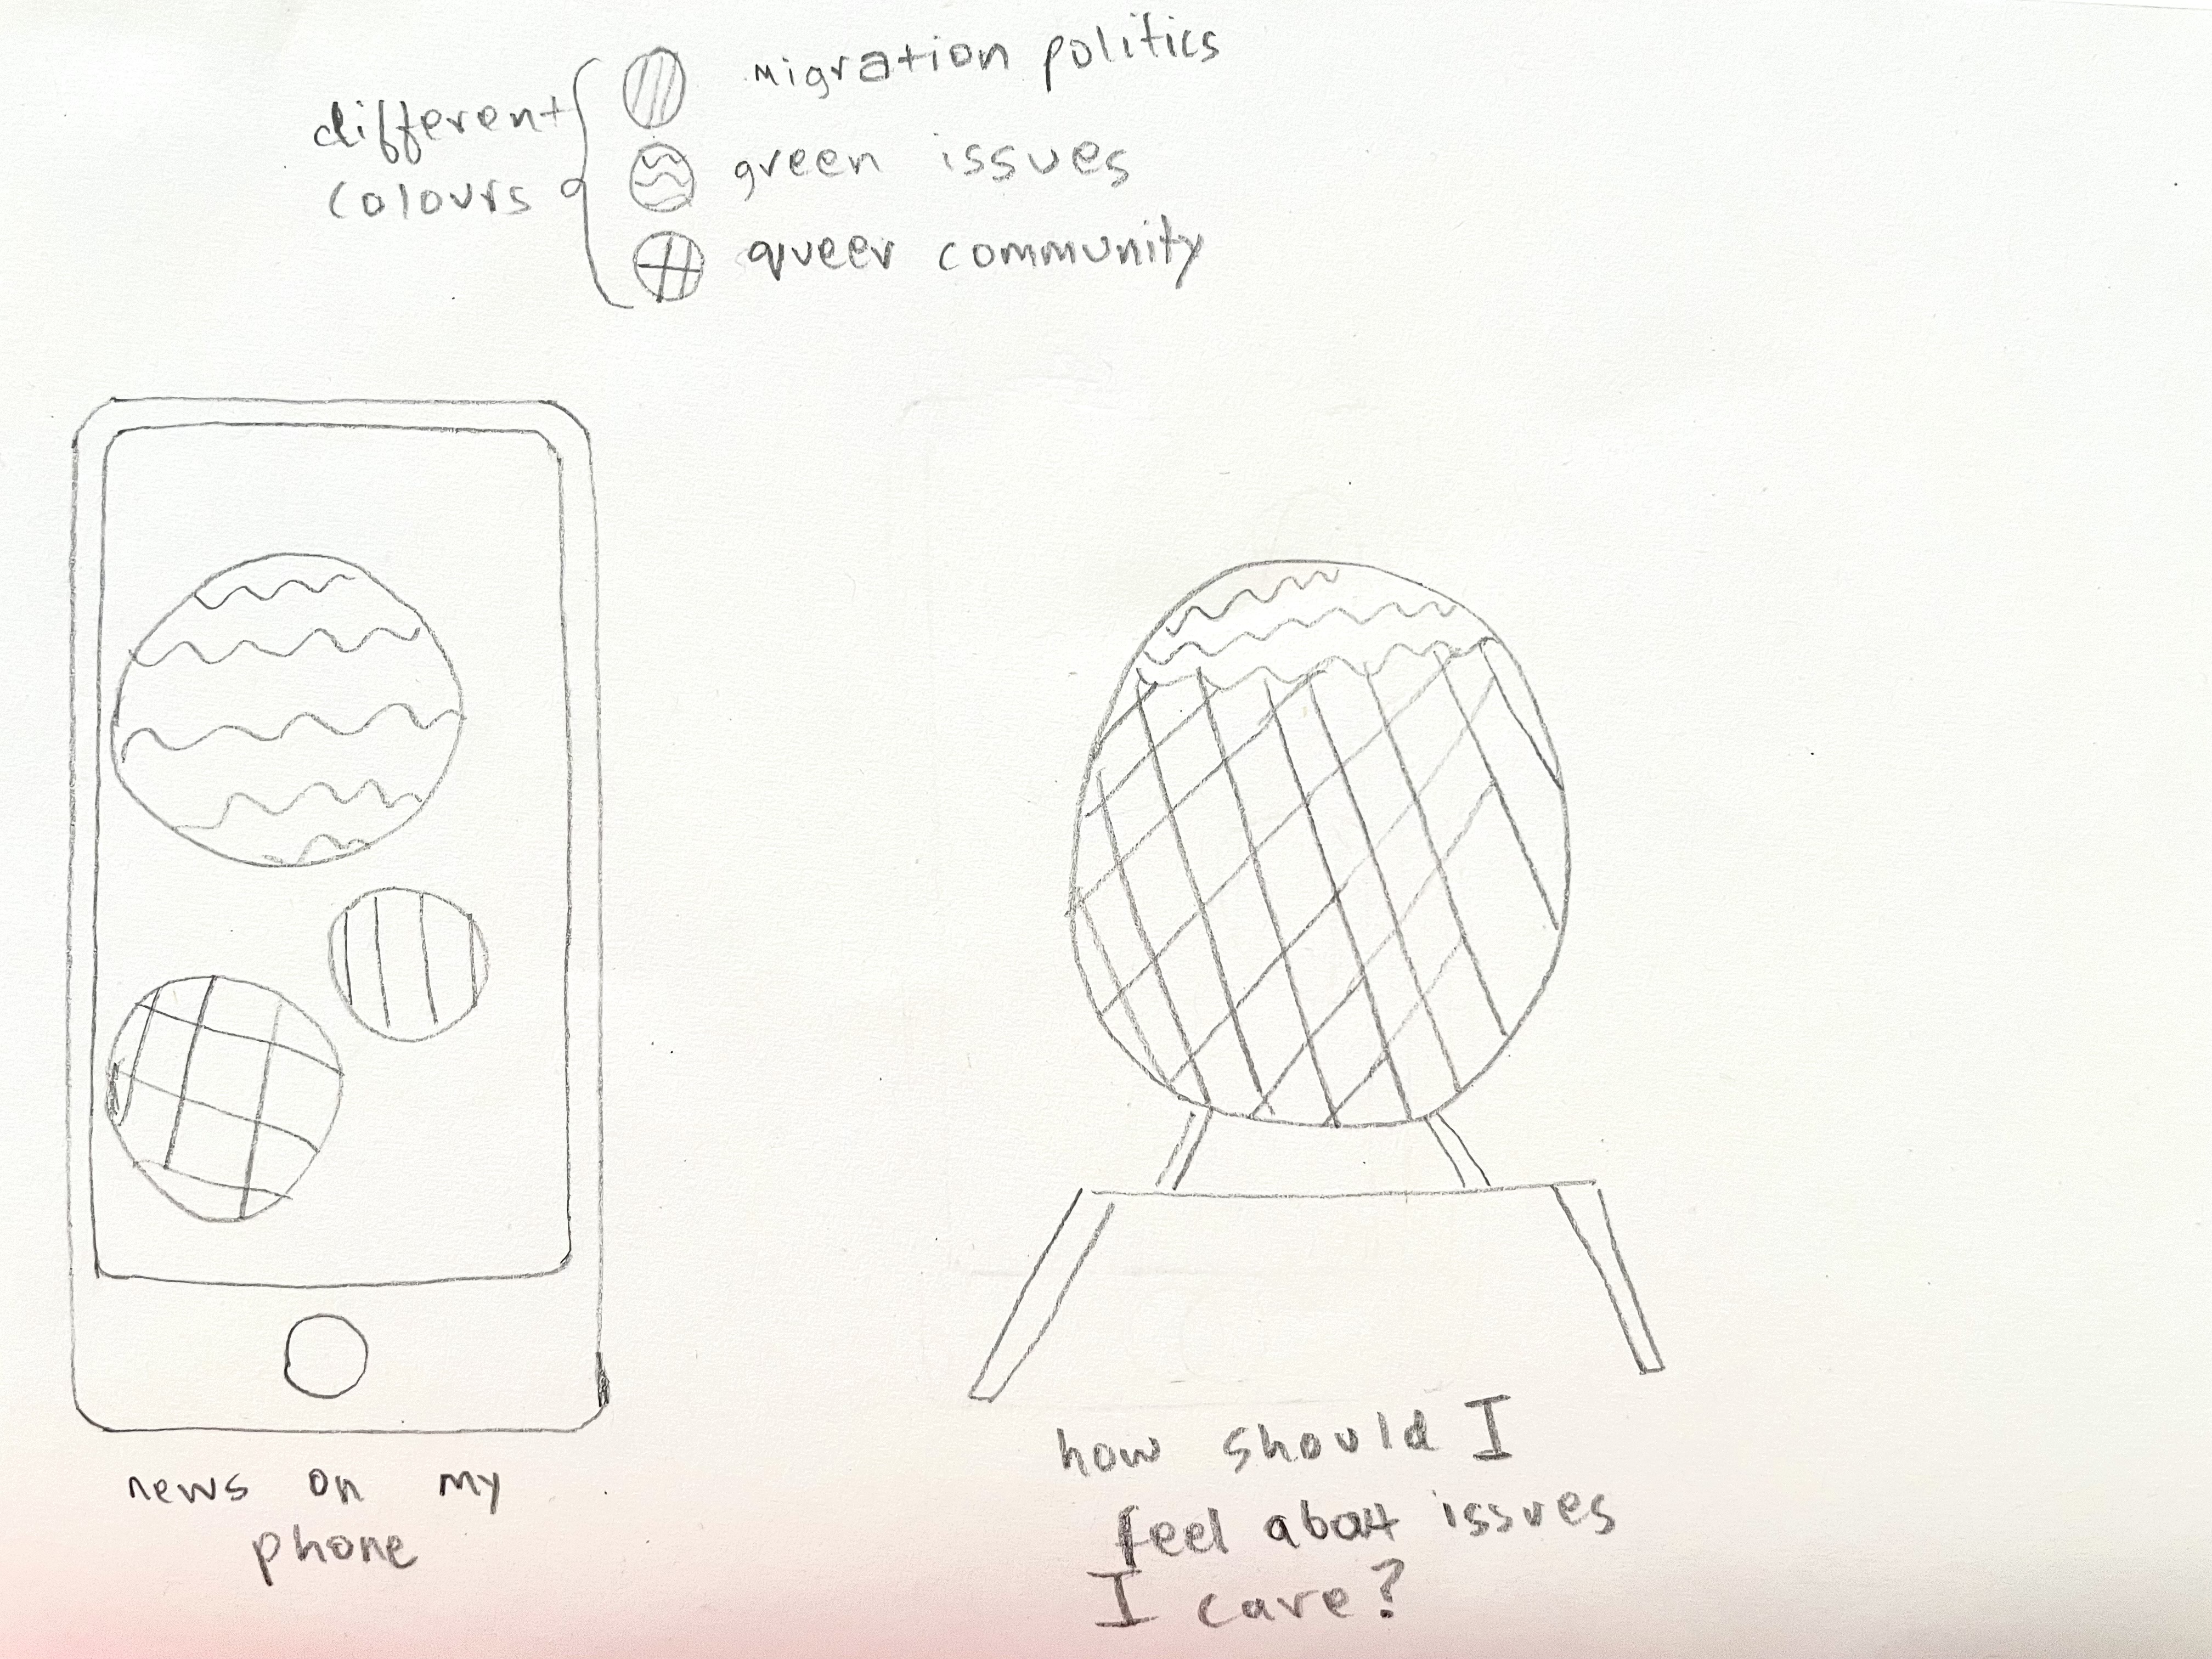 different
colours
migration politics
green issues
queer community
news on my
phone
how should I
feel about issues
I care?